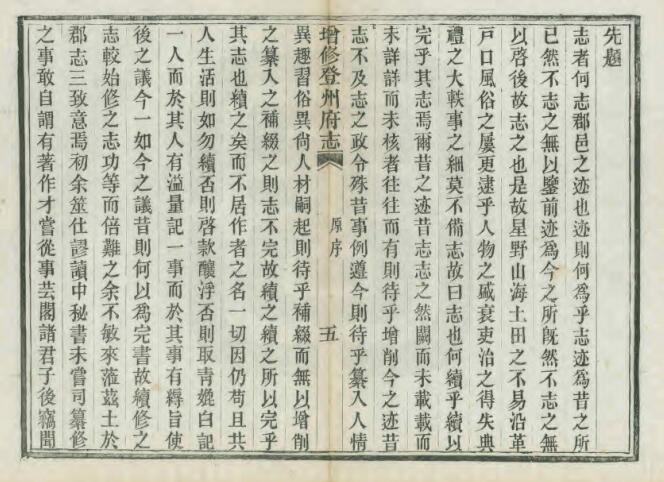 先題
志者何志郡邑之迹也迹則何爲乎志迹爲昔之所
已然不志之無以鑒前迹爲今之所旣然不志之無
以啓後故志之也是故星野山海土田之不易沿革
戸口風俗之屢更逮乎人物之盛衰吏治之得失典
禮之大軼事之細莫不備志故曰志也何續乎續以
完乎其志焉爾昔之迹昔志志之然闕而未載載而
未詳詳而未核者往往而有則待乎增削今之迹昔
志不及志之政令殊昔事例遵今則待乎纂入人情
增修登州府志
原序
五
異趣習俗異尙人材嗣起則待乎補綴而無以增削
之纂入之補綴之則志不完故續之續之所以完乎
其志也續之矣而不居作者之名一切因仍苟且共
人生活則如勿續否則啓款釀浮否則取靑媲白記
一人而於其人有溢量記一事而於其事有縟旨使
後之議今一如今之議昔則何以爲完書故續修之
志較始修之志功等而倍難之余不敏來蒞茲土於
郡志三致意焉初余筮仕謬讀中秘書未嘗司纂修
之事敢自謂有著作才嘗從事芸閣諸君子後竊聞